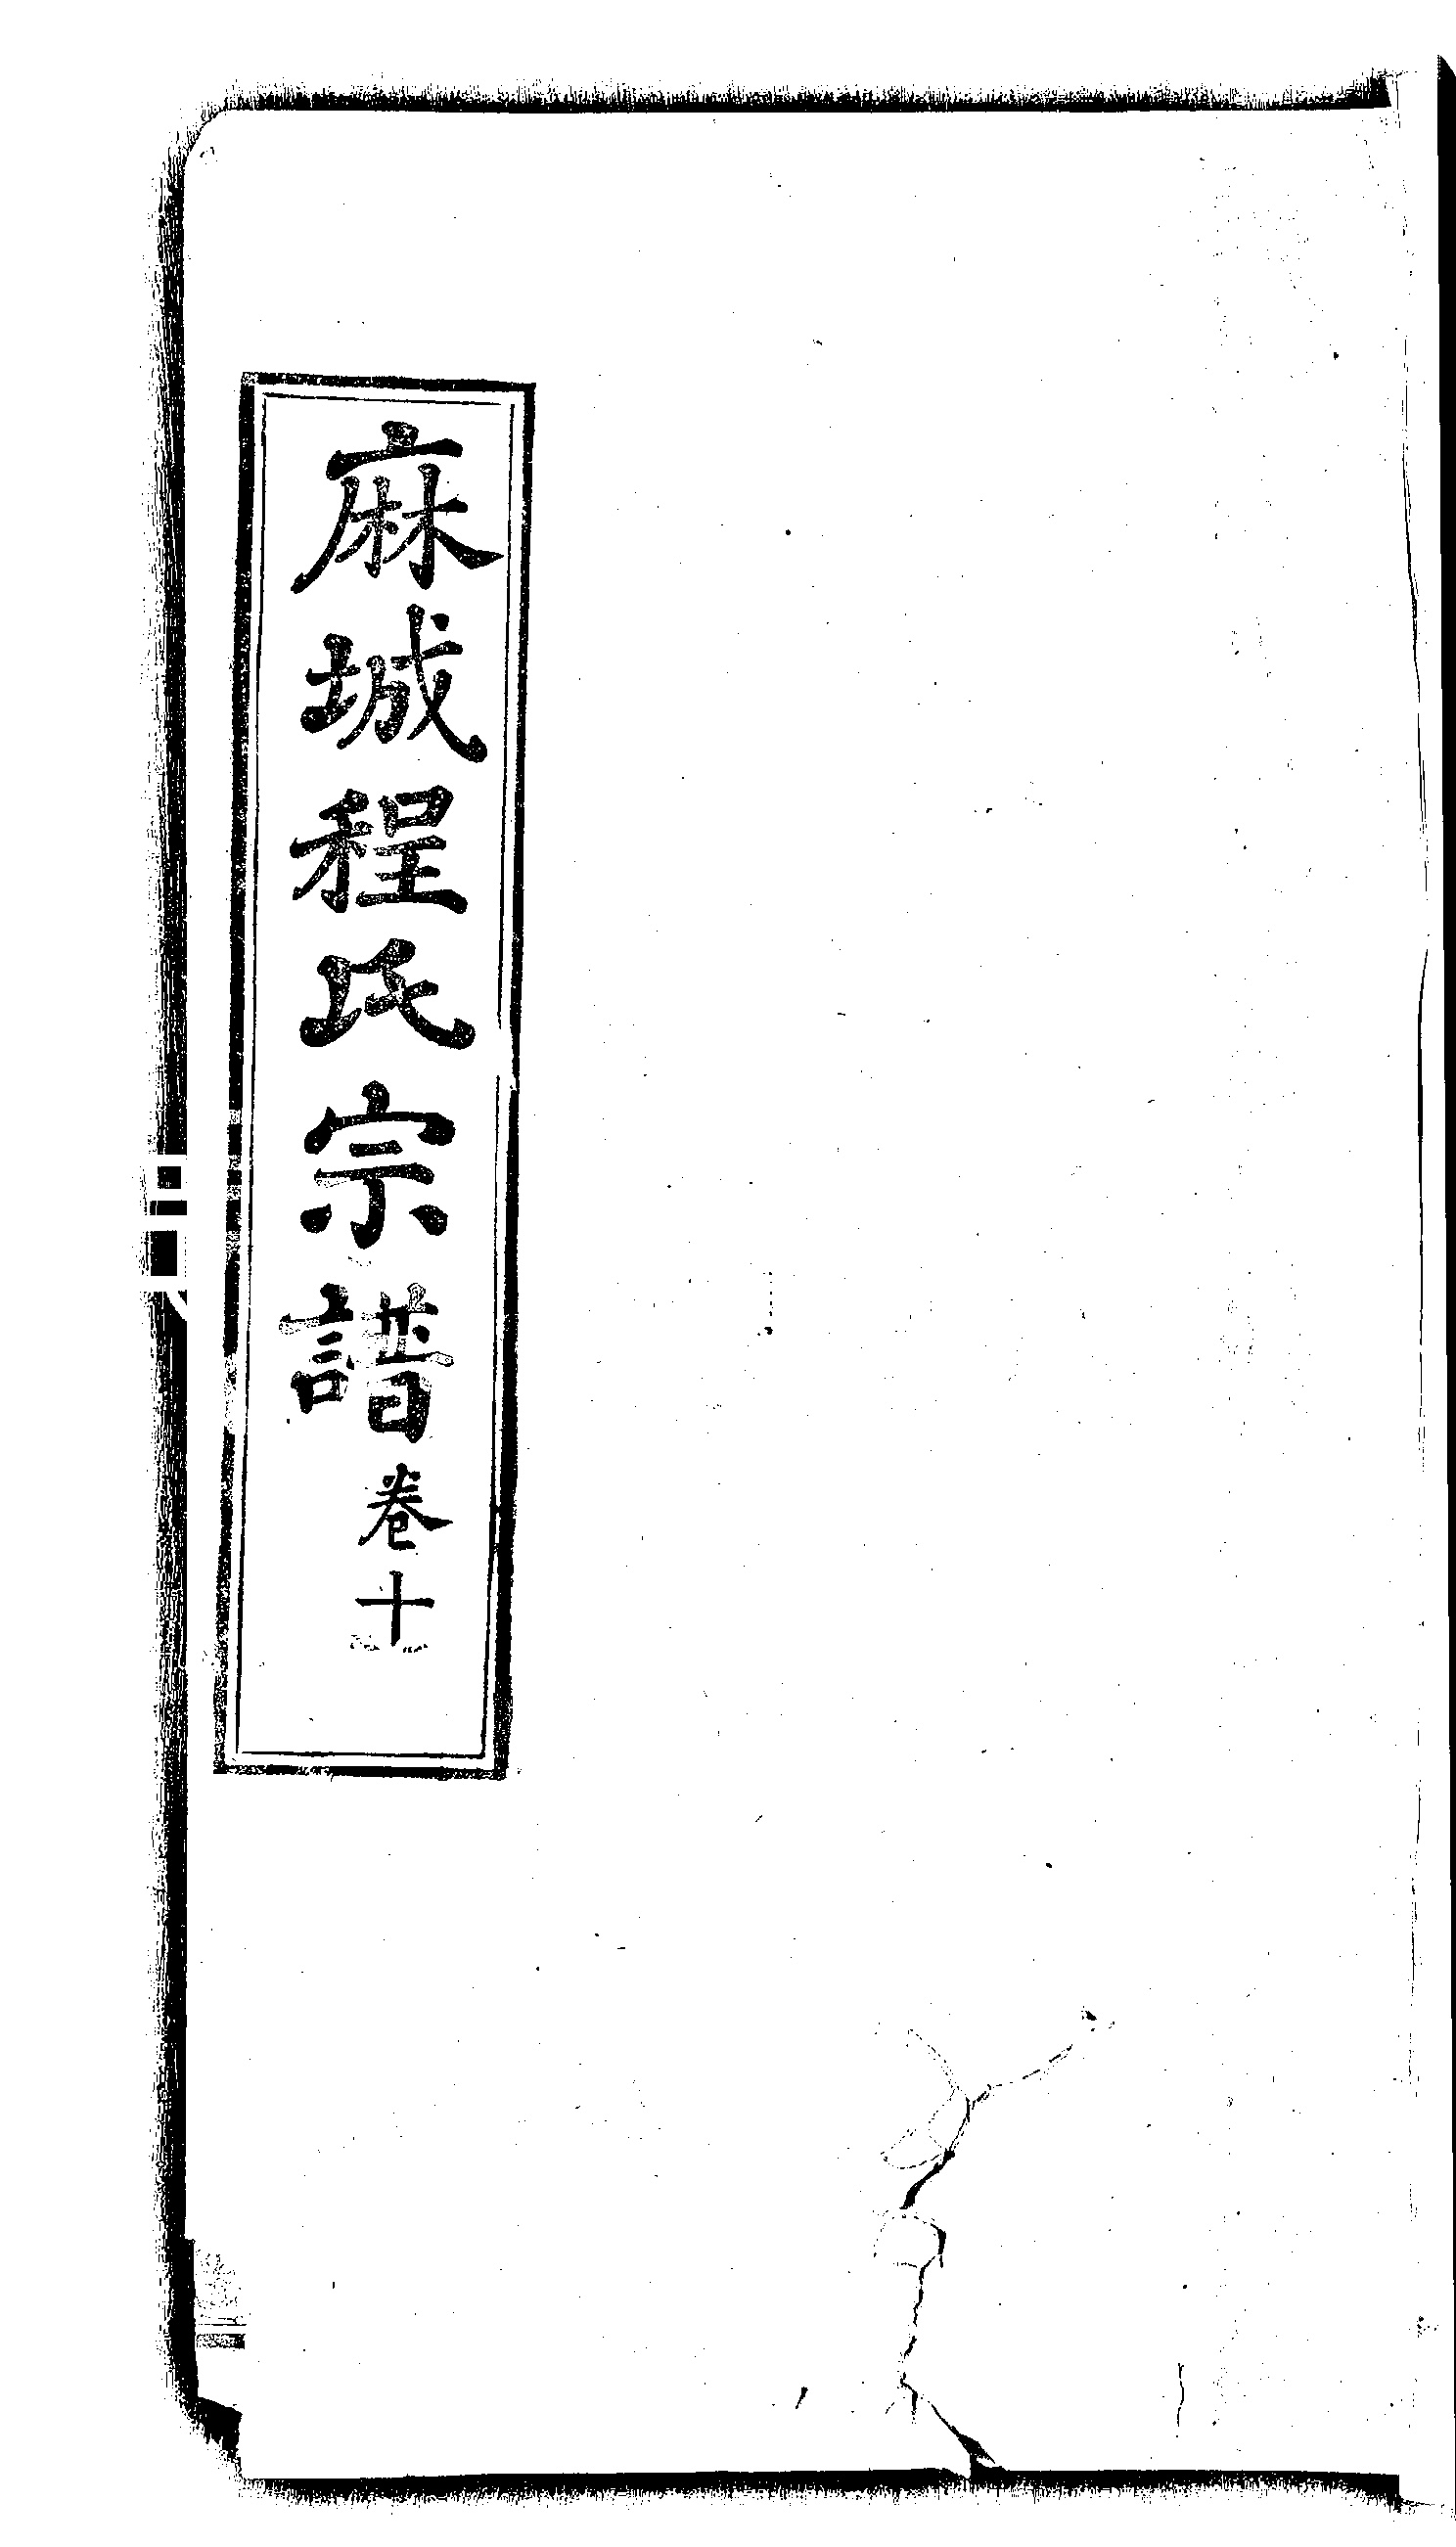 麻城程氏宗譜卷十